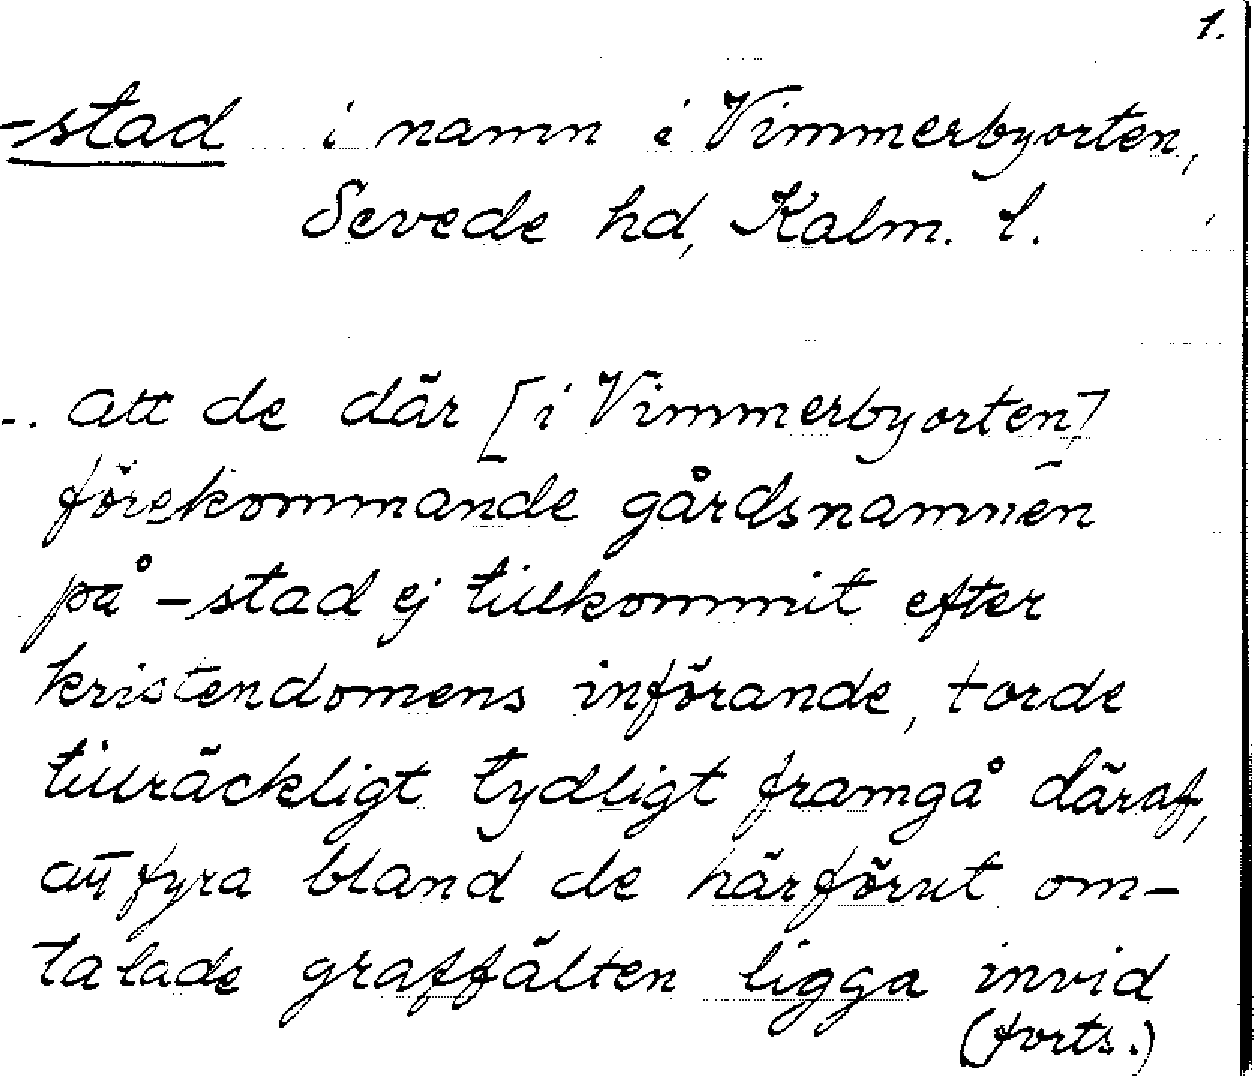 1.
-stad i namn i Vimmerbyorten,
Sevede hd, Kalm. l.
.. att de där [i Vimmerbyorten]
förekommande gårdsnamnen
på -stad ej tillkommit efter
kristendomens införande, torde
tillräckligt tydligt framgå däraf,
att fyra bland de härförut om-
talade graffälten ligga invid
(forts.)